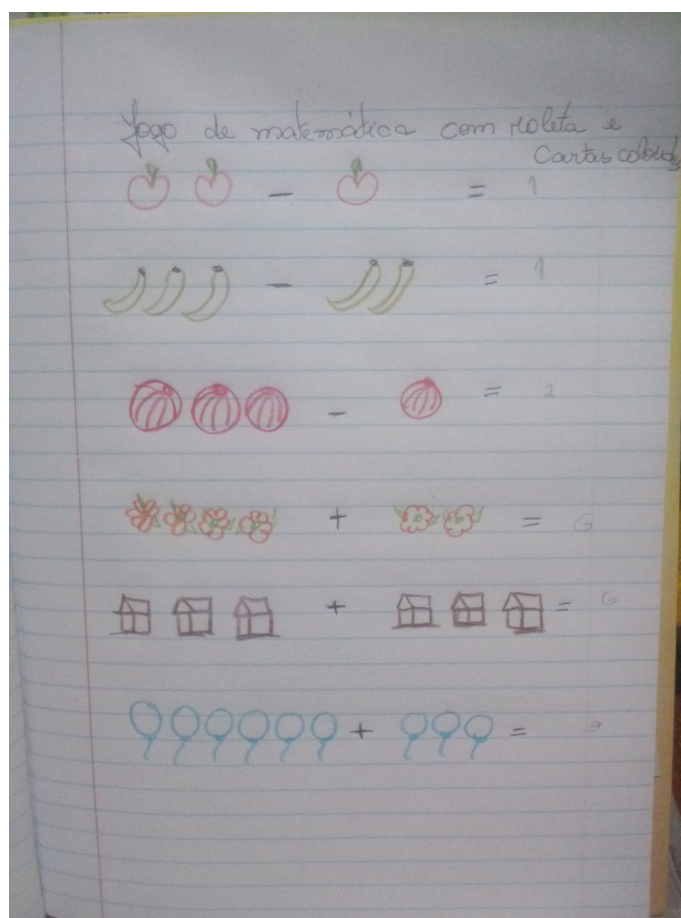 Jogo de matemática com roleta e
Cartas
- = 1
- = 1
- = 2
+ = 6
+ = 6
+ = 9